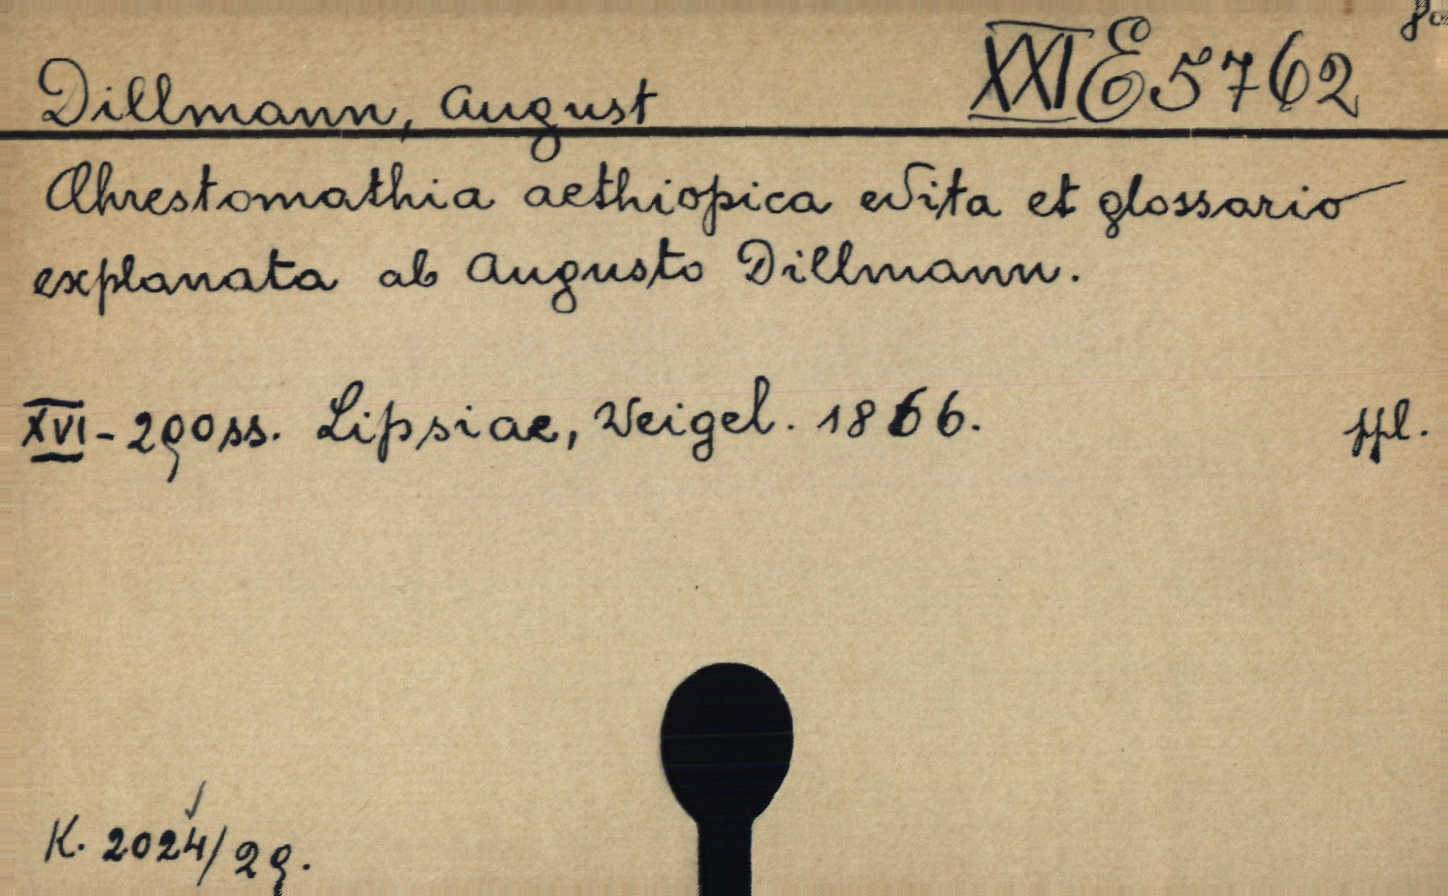 Dillmann, August XXI E 5762
Chrestomathia aethiopica edita et glossario
explanata ab Augusto Dillmann.
XVI-290 ss. Lipsiae, Weigel. 1866.
ppl.
K. 2024/29.